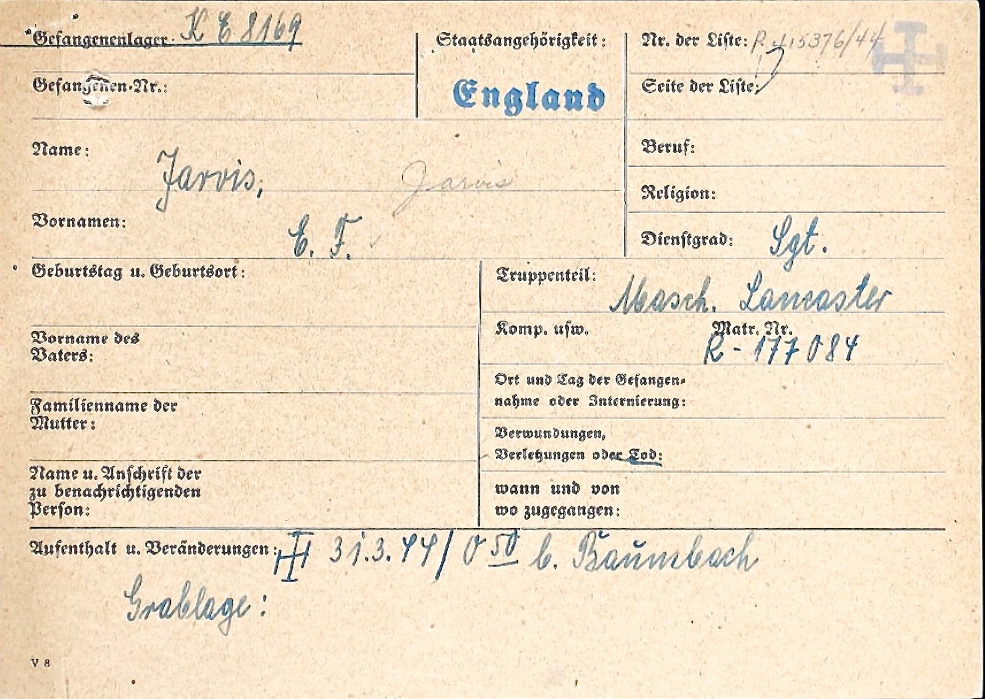 Gefangenenlager: K E 8169
Staatsangehörigkeit:
England
Nr. der Liste: R 415376/44
Gefangenen-Nr.:
Seite der Liste:
Name: Jarvis, Jarvis
Beruf:
Religion:
Vornamen: E. F.
Dienstgrad: Sgt.
Geburtstag u. Geburtsort:
Truppenteil: Masch. Lancaster
Komp. usw.
Matr. Nr. R-177084
Vorname des
Vaters:
Ort und Tag der Gefangen-
nahme oder Internierung:
Familienname der
Mutter:
Verwundungen,
Verletzungen oder Tod:
Name u. Anschrift der
zu benachrichtigenden
Person:
wann und von
wo zugegangen:
Aufenthalt u. Veränderungen: 31.3.44/0 50 b. Baumbach
Grablage:
V 8